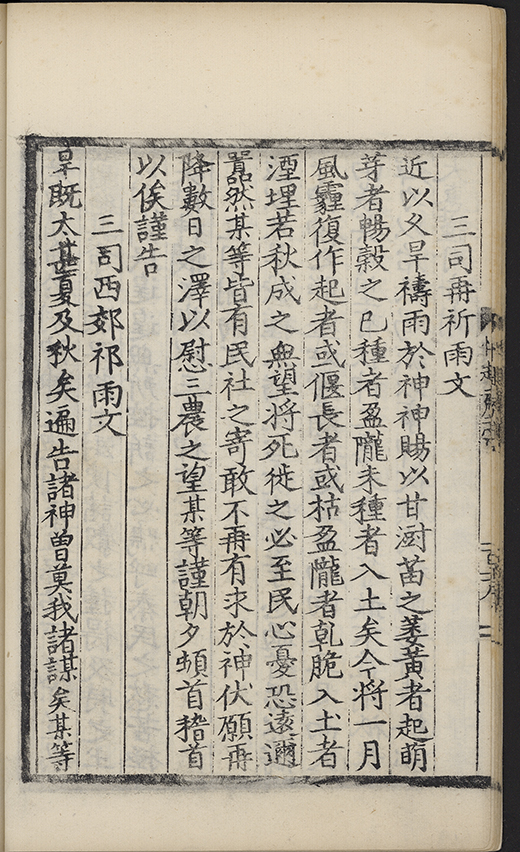 三司再祈雨文
近以久旱禱雨於神神賜以甘澍苗之萎黃者起萌
芽者暢穀之已種者盈隴未種者入土矣今將一月
風霾復作起者或偃長者或枯盈隴者乾脆入土者
湮埋若秋成之無望將死徙之必至民心憂恐遠邇
囂然某等皆有民社之寄敢不再有求於神伏願再
降數日之澤以慰三農之望某等謹朝夕頓首稽首
以俟謹告
三司西郊祈雨文
旱旣太甚夏及秋矣遍告諸神曾莫我諸謀矣某等